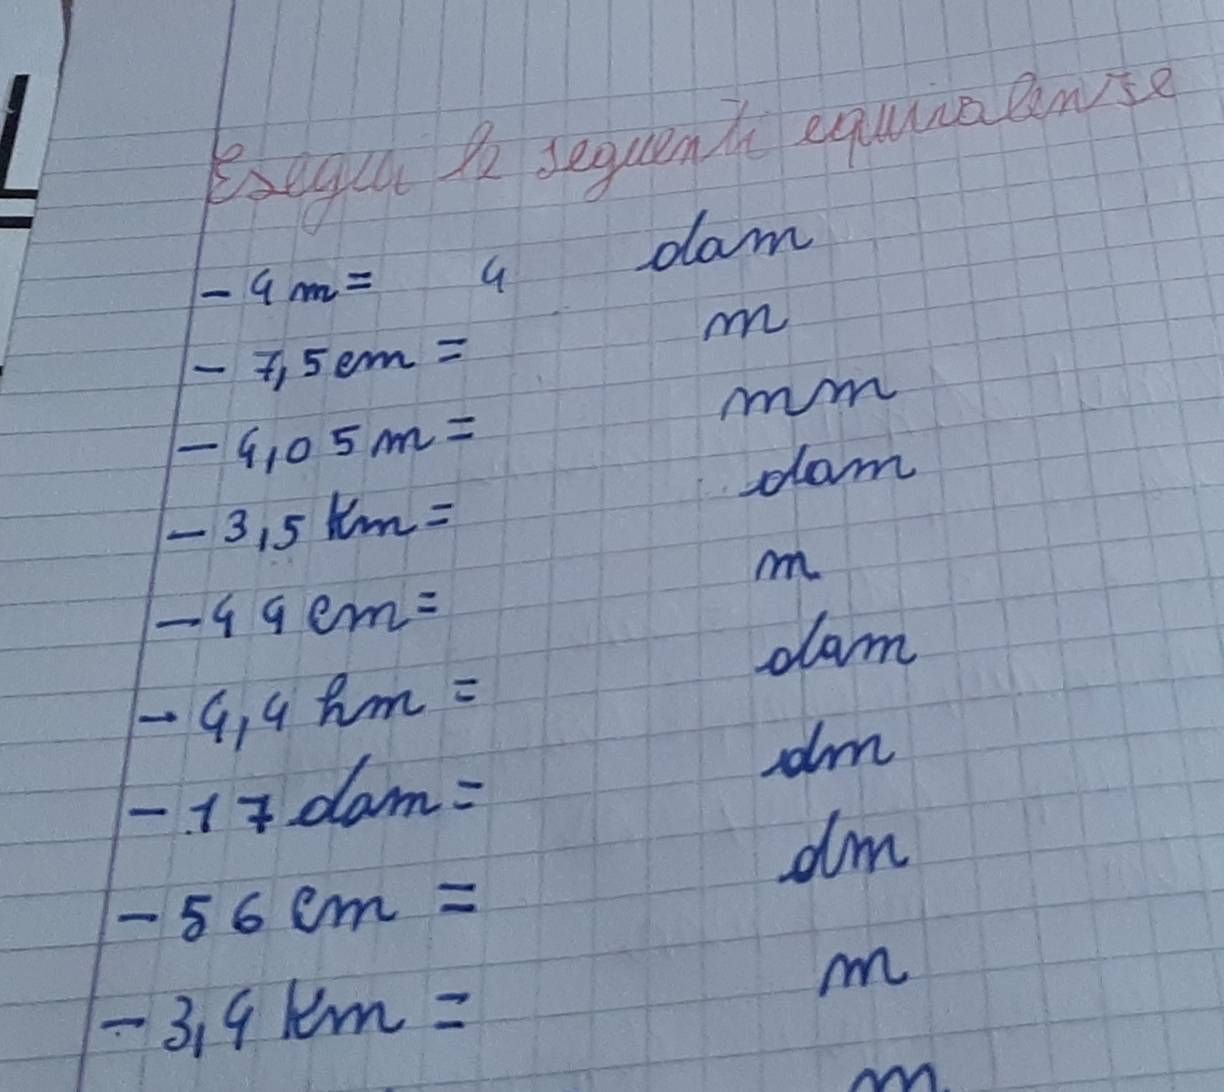 Esegui le seguenti equivalenze
- 4 m = 4 dam
- 7,5 cm = m
- 4,05 m = mm
- 3,5 km = dam
- 44 cm = m
- 4,4 hm = dam
- 17 dam = dm
- 56 cm = dm
- 3,4 km = m
m